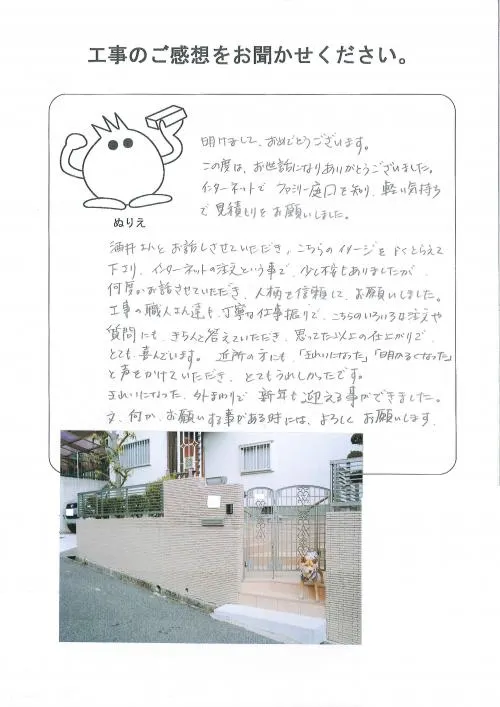 工事のご感想をお聞かせください。
明けまして、おめでとうございます。
この度は、お世話になりありがとうございました。
インターネットで ファミリー庭口を知り、軽い気持ち
で見積もりをお願いしました。
ぬりえ
酒井さんとお話しさせていただき、こちらのイメージをよくとらえて
下さり、インターネットの注文という事で、少し不安もありましたが、
何度かお話させていただき、人柄を信頼して、お願いしました。
工事の職人さん達も、丁寧な仕事振りで、こちらのいろいろな注文や
質問にも、きちんと答えていただき、思ってた以上の仕上がりで、
とても、喜んでいます。 近所の方にも、「きれいになった」「明かるくなった」
と声をかけていただき、とてもうれしかったです。
きれいになった、外まわりで 新年も迎える事ができました。
又、何か、お願いする事がある時には、よろしくお願いします。